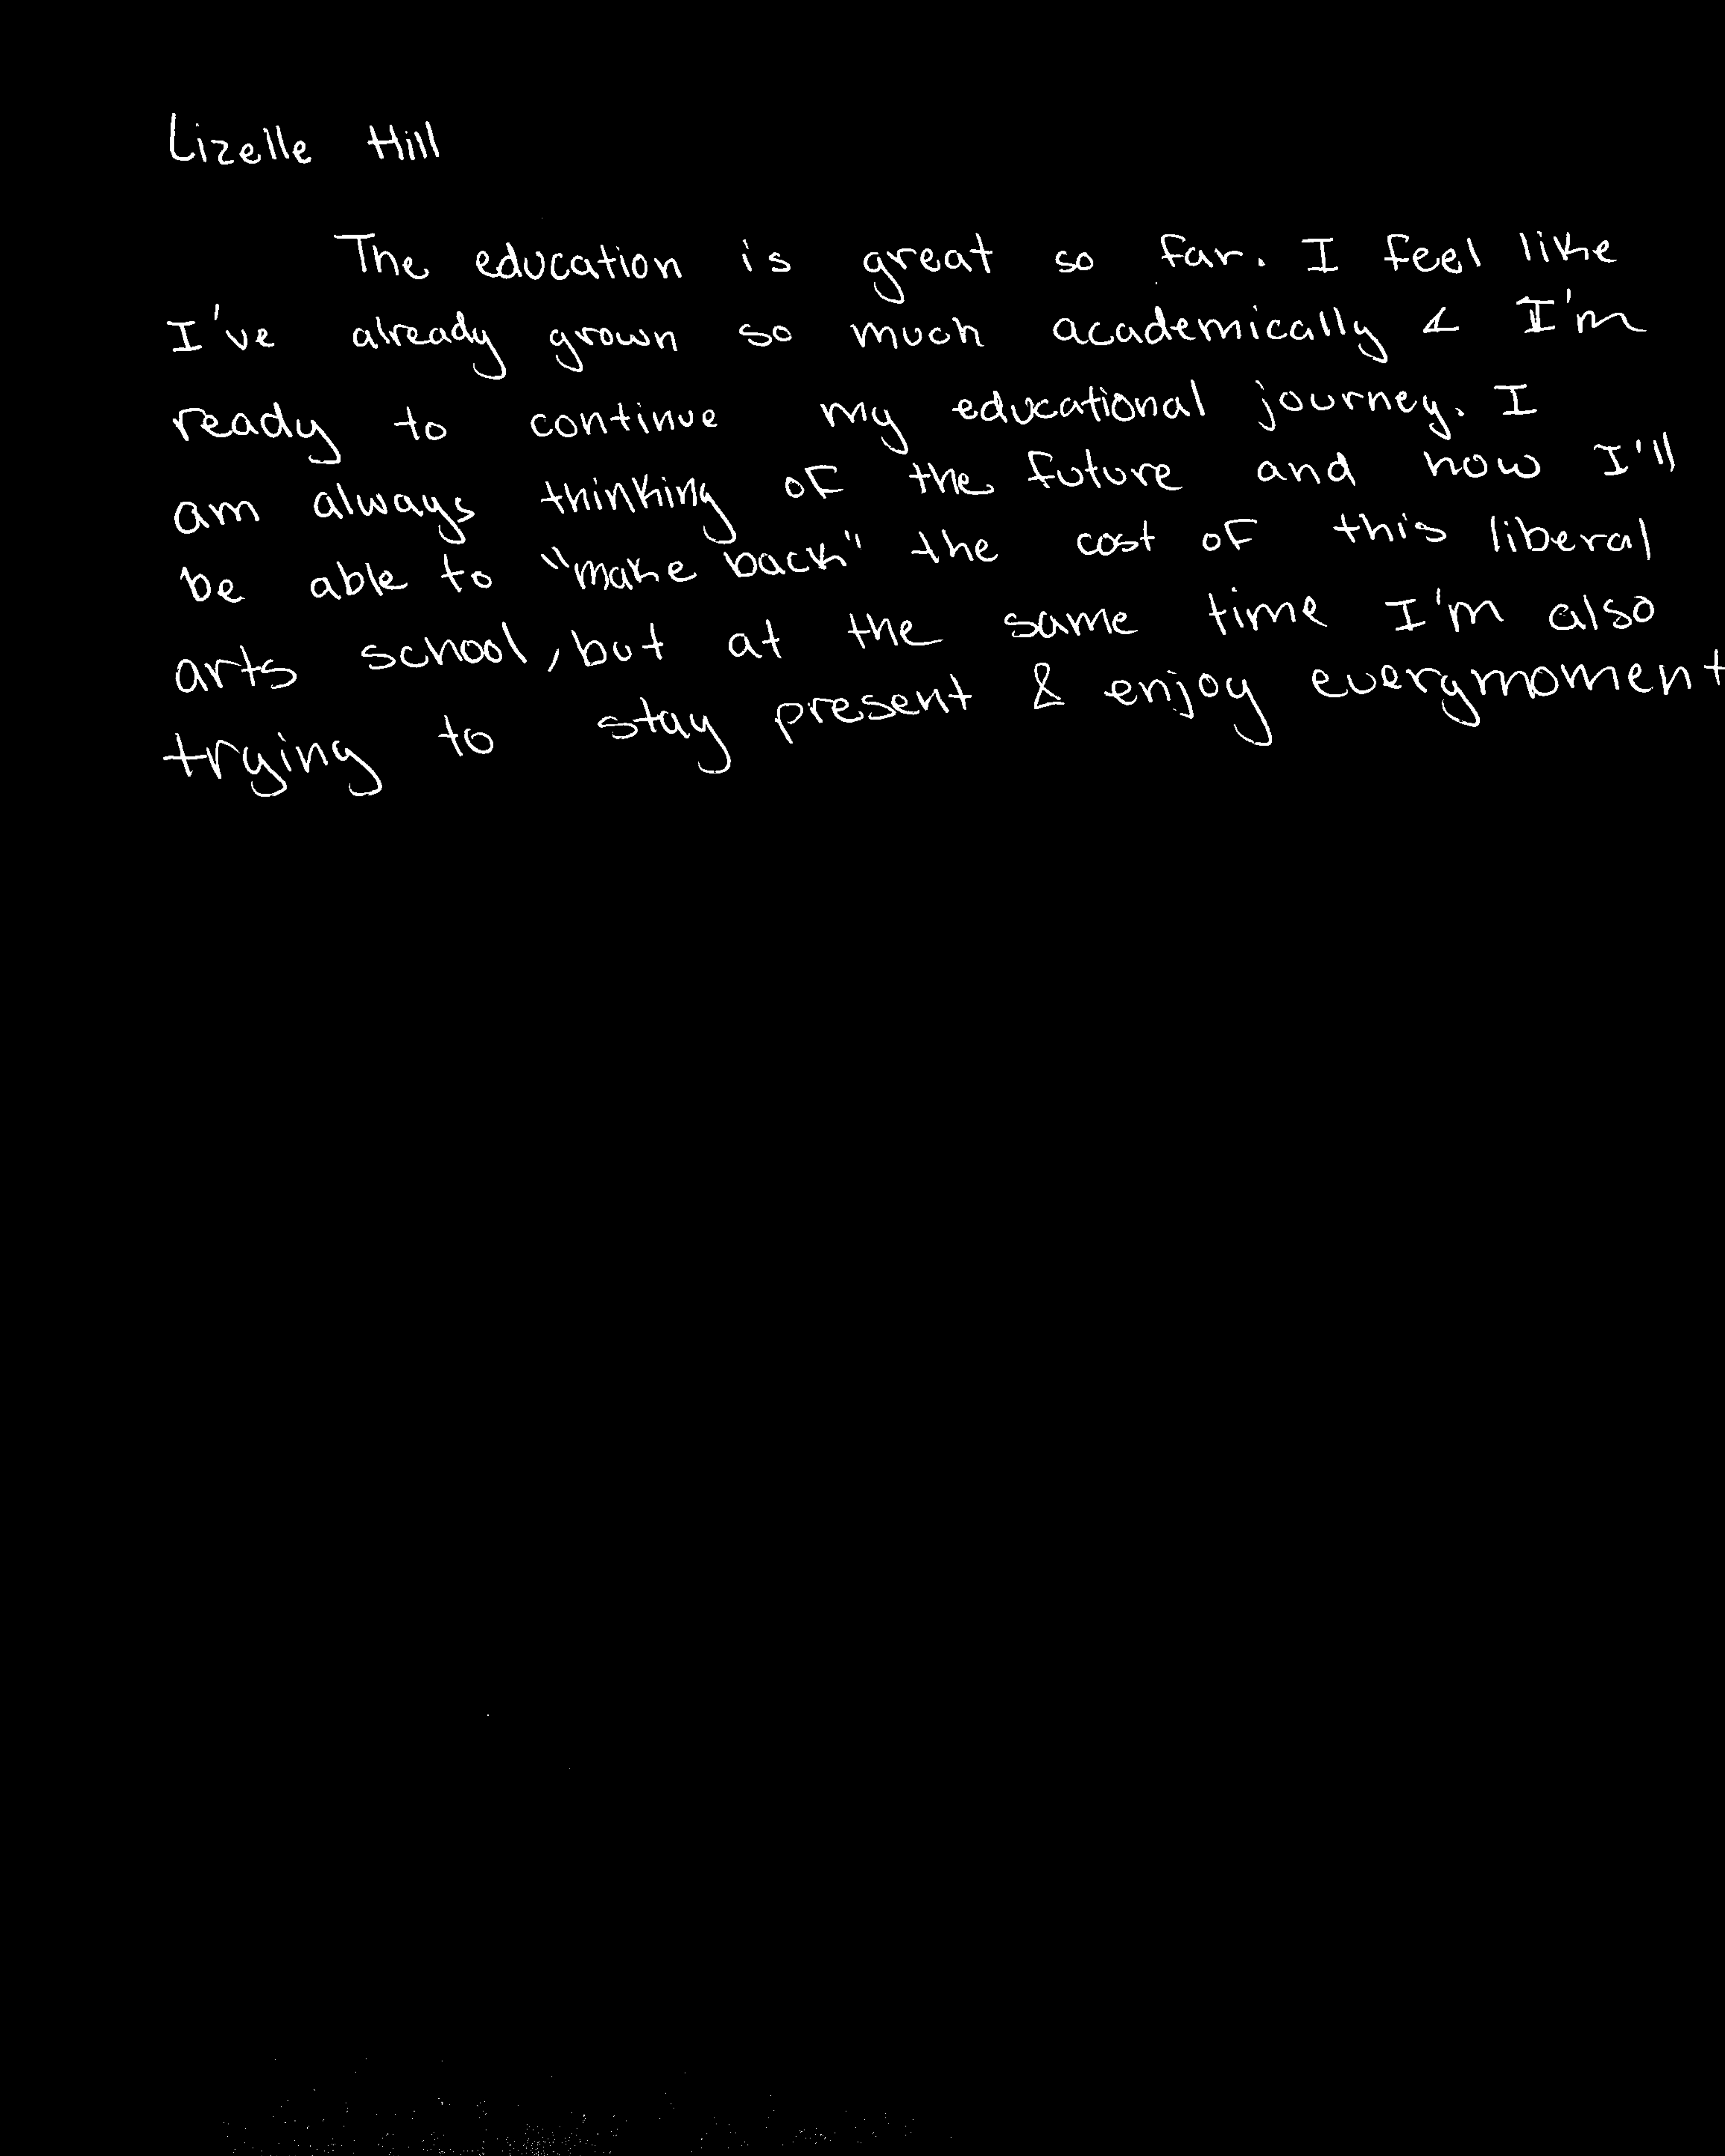 Lizelle Hill
The education is great so far. I feel like
I've already grown so much academically & I'm
ready to continue my educational journey. I
am always thinking of the future and how I'll
be able to "make back" the cost of this liberal
arts school, but at the same time I'm also
trying to stay present & enjoy every moment